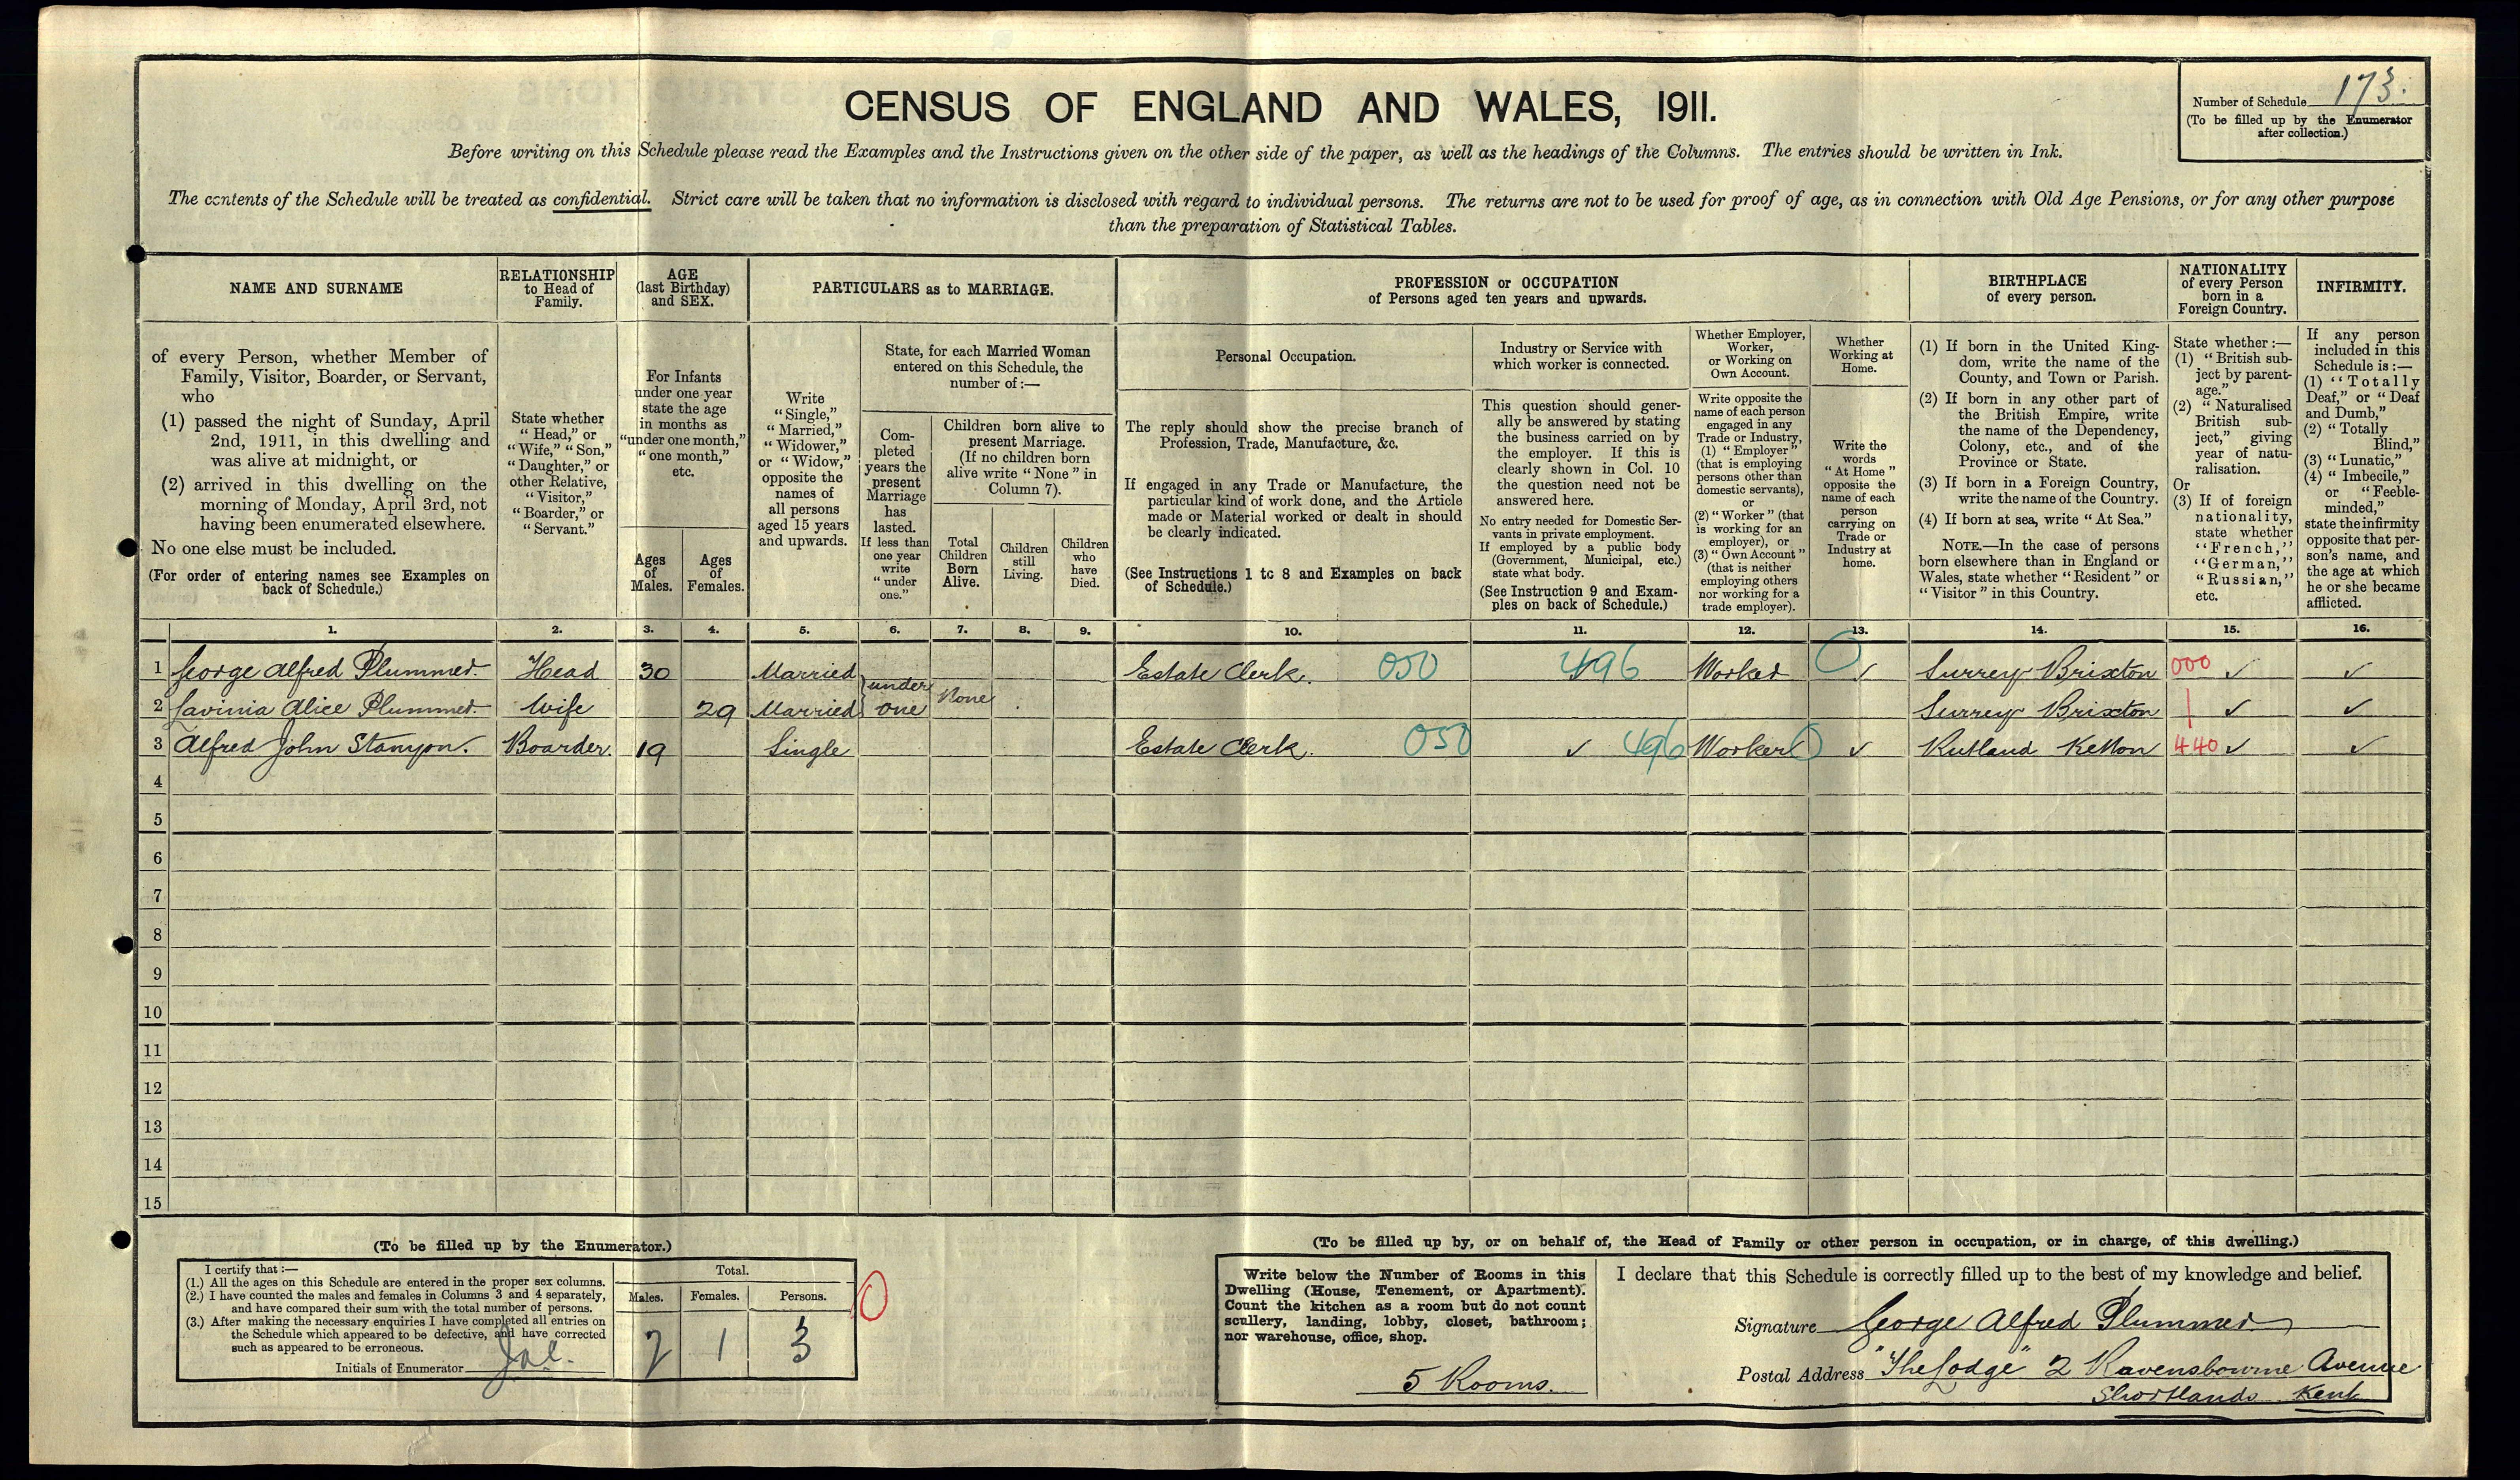 CENSUS OF ENGLAND AND WALES, 1911.
Number of Schedule 173.
(To be filled up by the Enumerator
after collection.)
Before writing on this Schedule please read the Examples and the Instructions given on the other side of the paper, as well as the headings of the Columns. The entries should be written in Ink.
The contents of the Schedule will be treated as confidential. Strict care will be taken that no information is disclosed with regard to individual persons. The returns are not to be used for proof of age, as in connection with Old Age Pensions, or for any other purpose
than the preparation of Statistical Tables.
NAME AND SURNAME
of every Person, whether Member of
Family, Visitor, Boarder, or Servant,
who
(1) passed the night of Sunday, April
2nd, 1911, in this dwelling and
was alive at midnight, or
(2) arrived in this dwelling on the
morning of Monday, April 3rd, not
having been enumerated elsewhere.
No one else must be included.
(For order of entering names see Examples on
back of Schedule.)
RELATIONSHIP
to Head of
Family.
State whether
"Head," or
"Wife," "Son,"
"Daughter," or
other Relative,
"Visitor,"
"Boarder," or
"Servant."
AGE
(last Birthday)
and SEX.
For Infants
under one year
state the age
in months as
"under one month,"
"one month,"
etc.
Ages
of
Males.
Ages
of
Females.
PARTICULARS as to MARRIAGE.
Write
"Single,"
"Married,"
"Widower,"
or "Widow,"
opposite the
names of
all persons
aged 15 years
and upwards.
State, for each Married Woman
entered on this Schedule, the
number of :—
Com-
pleted
years the
present
Marriage
has
lasted.
If less than
one year
write
"under
one."
Children born alive to
present Marriage.
(If no children born
alive write "None" in
Column 7).
Total
Children
Born
Alive.
Children
still
Living.
Children
who
have
Died.
PROFESSION or OCCUPATION
of Persons aged ten years and upwards.
Personal Occupation.
The reply should show the precise branch of
Profession, Trade, Manufacture, &c.
If engaged in any Trade or Manufacture, the
particular kind of work done, and the Article
made or Material worked or dealt in should
be clearly indicated.
(See Instructions 1 to 8 and Examples on back
of Schedule.)
Industry or Service with
which worker is connected.
This question should gener-
ally be answered by stating
the business carried on by
the employer. If this is
clearly shown in Col. 10
the question need not be
answered here.
No entry needed for Domestic Ser-
vants in private employment.
If employed by a public body
(Government, Municipal, etc.)
state what body.
(See Instruction 9 and Exam-
ples on back of Schedule.)
Whether Employer,
Worker,
or Working on
Own Account.
Write opposite the
name of each person
engaged in any
Trade or Industry,
(1) "Employer"
(that is employing
persons other than
domestic servants),
or
(2) "Worker" (that
is working for an
employer), or
(3) "Own Account"
(that is neither
employing others
nor working for a
trade employer).
Whether
Working at
Home.
Write the
words
"At Home"
opposite the
name of each
person
carrying on
Trade or
Industry at
home.
BIRTHPLACE
of every person.
(1) If born in the United King-
dom, write the name of the
County, and Town or Parish.
(2) If born in any other part of
the British Empire, write
the name of the Dependency,
Colony, etc., and of the
Province or State.
(3) If born in a Foreign Country,
write the name of the Country.
(4) If born at sea, write "At Sea."
NOTE.—In the case of persons
born elsewhere than in England or
Wales, state whether "Resident" or
"Visitor" in this Country.
NATIONALITY
of every Person
born in a
Foreign Country.
State whether :—
(1) "British sub-
ject by parent-
age."
(2) "Naturalised
British sub-
ject," giving
year of natu-
ralisation.
Or
(3) If of foreign
nationality,
state whether
"French,"
"German,"
"Russian,"
etc.
INFIRMITY.
If any person
included in this
Schedule is :—
(1) "Totally
Deaf," or "Deaf
and Dumb,"
(2) "Totally
Blind,"
(3) "Lunatic,"
(4) "Imbecile,"
or "Feeble-
minded,"
state the infirmity
opposite that per-
son's name, and
the age at which
he or she became
afflicted.
1. 2. 3. 4. 5. 6. 7. 8. 9. 10. 11. 12. 13. 14. 15. 16.
1 George Alfred Plummer. Head 30 Married under Estate Clerk. 050 496 Worker 0 ✓ Surrey Brixton 000 ✓ ✓
2 Lavinia Alice Plummer. Wife 29 Married one None Surrey Brixton | ✓ ✓
3 Alfred John Stanyon. Boarder. 19 Single Estate Clerk. 050 ✓ 496 Worker 0 ✓ Rutland Ketton 440 ✓ ✓
4
5
6
7
8
9
10
11
12
13
14
15
(To be filled up by the Enumerator.)
I certify that :—
(1.) All the ages on this Schedule are entered in the proper sex columns.
(2.) I have counted the males and females in Columns 3 and 4 separately,
and have compared their sum with the total number of persons.
(3.) After making the necessary enquiries I have completed all entries on
the Schedule which appeared to be defective, and have corrected
such as appeared to be erroneous.
Initials of Enumerator
Total.
Males. Females. Persons.
2 1 3
0
(To be filled up by, or on behalf of, the Head of Family or other person in occupation, or in charge, of this dwelling.)
Write below the Number of Rooms in this
Dwelling (House, Tenement, or Apartment).
Count the kitchen as a room but do not count
scullery, landing, lobby, closet, bathroom;
nor warehouse, office, shop.
5 Rooms.
I declare that this Schedule is correctly filled up to the best of my knowledge and belief.
Signature George Alfred Plummer
Postal Address "The Lodge" 2 Ravensbourne Avenue
Shortlands Kent